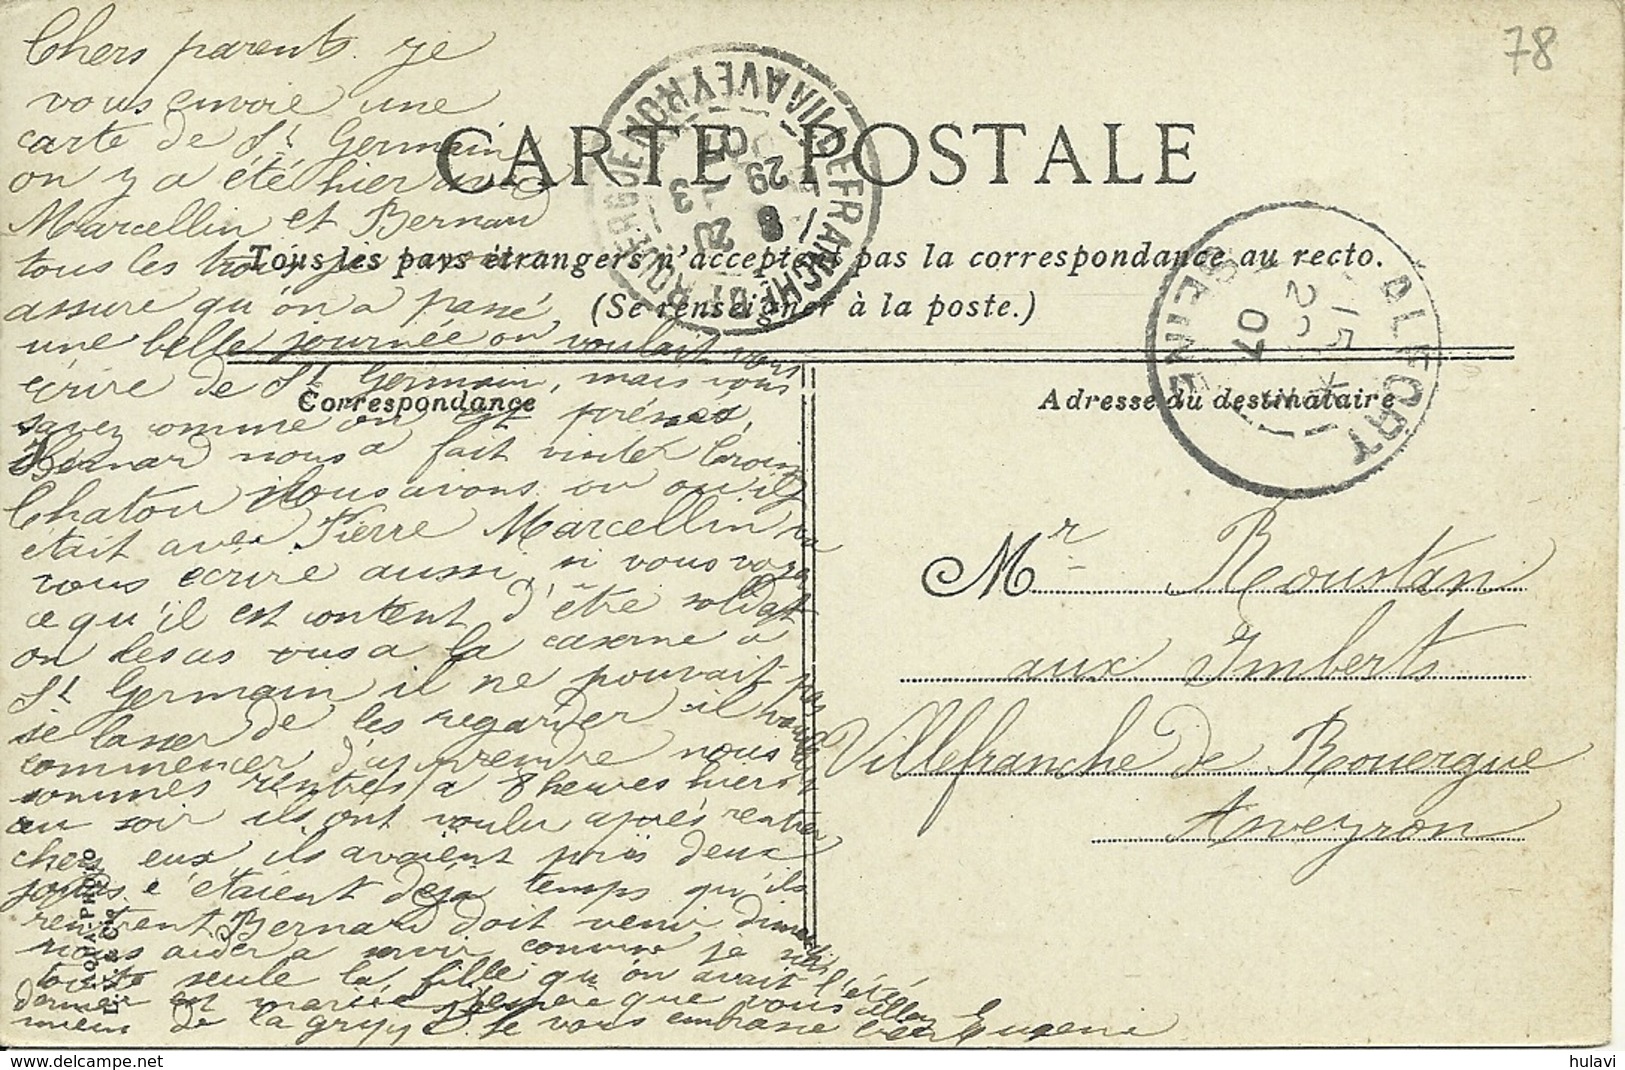 78
Chers parents. je
vous envoie une
carte de St Germain
on y a été hier avec
Marcellin et Bernard
tous les trois je vous
assure qu'on a passé
une belle journée on voulait vous
écrire de St Germain, mais vous
savez comme on est
Bernard nous a fait visiter Croissy
Chatou Nous avons vu ou il
était avec Pierre Marcellin va
vous écrire aussi, si vous voyez
ce qu'il est content d'être soldat
on les as vus a la caserne a
St Germain il ne pouvait pas
se lasser de les regarder il voulait
commencer d'apprendre nous
sommes rentrés a 8 heures hiers
au soir ils ont voulu après rentrer
chez eux, ils avaient pris deux
jours c'étaient déjà temps qu'ils
rentrent Bernard doit venir dimanche
nous aider a servir comme je suis
toute seule la fille qu'on avait l'été
dernier est mariée j'espère que vous allez
mieux de la grippe. Je vous embrasse Eugenie
CARTE POSTALE
Tous les pays étrangers n'acceptent pas la correspondance au recto.
(Se renseigner à la poste.)
Correspondance
Adresse du destinataire
VILLEFRANCHE DE ROUERGUE AVEYRON
ALFORT
SEINE
07
Mr Roustan
aux Imberts
Villefranche de Rouergue
Aveyron
AQUA-PHOTO
hulavi
delcampe.net